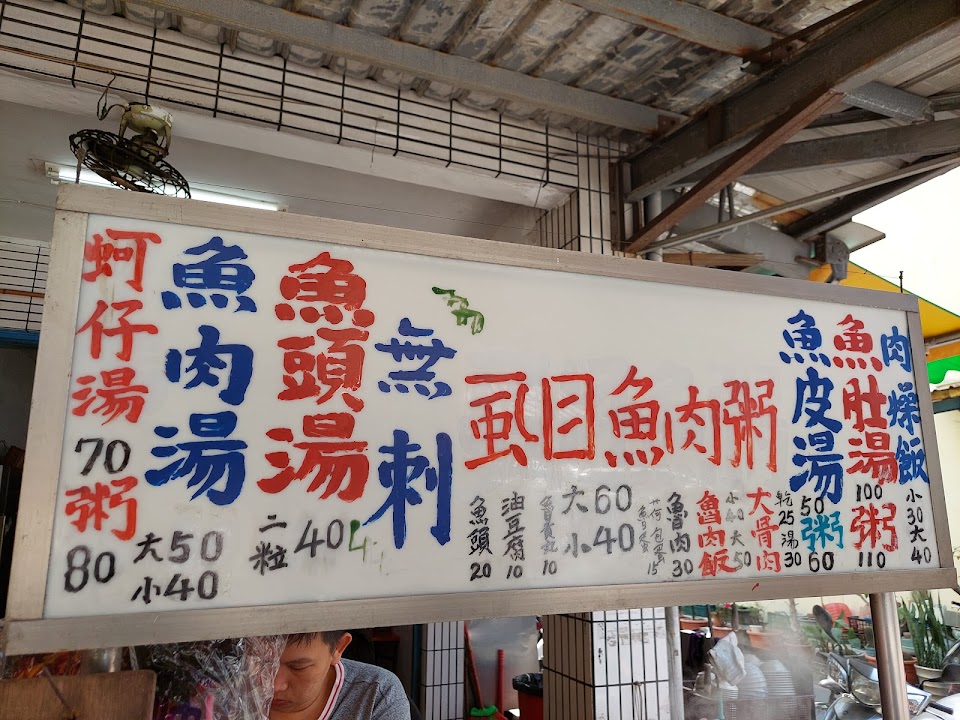 蚵仔湯
70
粥
80
魚肉湯
大50
小40
魚頭湯
二粒 40
無刺
虱目魚肉粥
大60
小40
魚頭
20
油豆腐
10
10
荷包蛋
15
魯肉
30
魯肉飯
小40
大50
大骨肉
乾25
湯30
魚皮湯
50
粥
60
魚肚湯
100
粥
110
肉燥飯
小30
大40